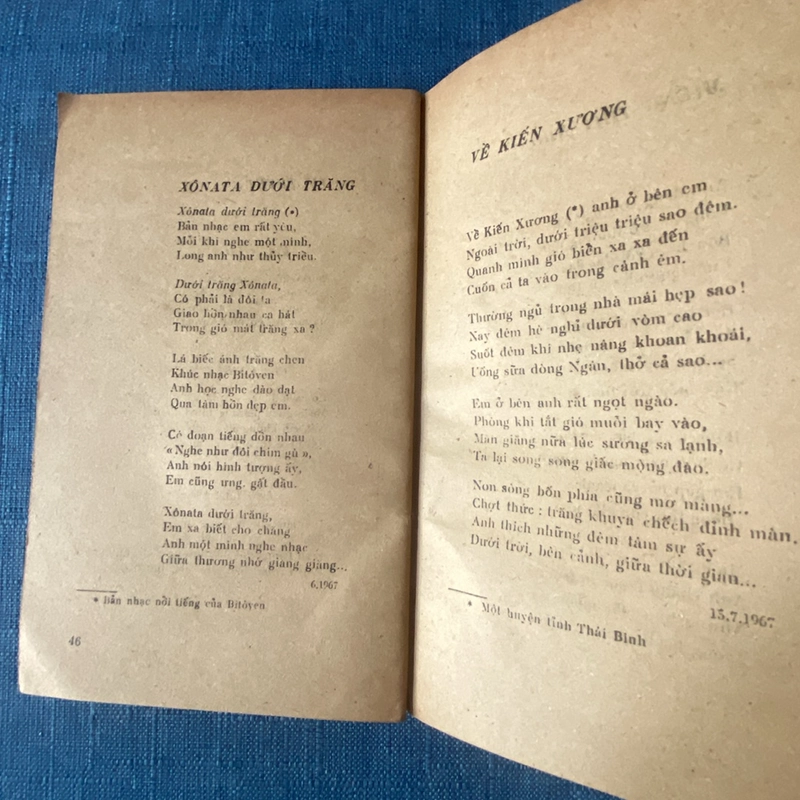 XÔNATA DƯỚI TRĂNG
Xônata dưới trăng (*)
Bản nhạc em rất yêu,
Mỗi khi nghe một mình,
Lòng anh như thủy triều.
Dưới trăng Xônata,
Có phải là đôi ta
Giao hồn nhau ca hát
Trong gió mát trăng xa ?
Lá biếc ánh trăng chen
Khúc nhạc Bitôven
Anh học nghe dào dạt
Qua tâm hồn đẹp em.
Có đoạn tiếng dồn nhau
« Nghe như đôi chim gù »,
Anh nói hình tượng ấy,
Em cũng ưng. gất đầu.
Xônata dưới trăng,
Em xa biết cho chăng
Anh một mình nghe nhạc
Giữa thương nhớ giăng giăng...
6.1967
* Bản nhạc nổi tiếng của Bitôven.
46
VỀ KIẾN XƯƠNG
Về Kiến Xương (*) anh ở bên em
Ngoài trời, dưới triệu triệu sao đêm.
Quanh mình gió biển xa xa đến
Cuốn cả ta vào trong cảnh êm.
Thường ngủ trong nhà mái hẹp sao !
Nay đêm hè nghỉ dưới vòm cao
Suốt đêm khí nhẹ nâng khoan khoái,
Uống sữa dòng Ngân, thở cả sao...
Em ở bên anh rất ngọt ngào.
Phòng khi tắt gió muỗi bay vào,
Màn giăng nữa lúc sương sa lạnh,
Ta lại song song giấc mộng đào.
Non sông bốn phía cũng mơ màng...
Chợt thức : trăng khuya chếch đỉnh màn.
Anh thích những đêm tâm sự ấy
Dưới trời, bên cảnh, giữa thời gian...
15.7.1967
* Một huyện tỉnh Thái Bình